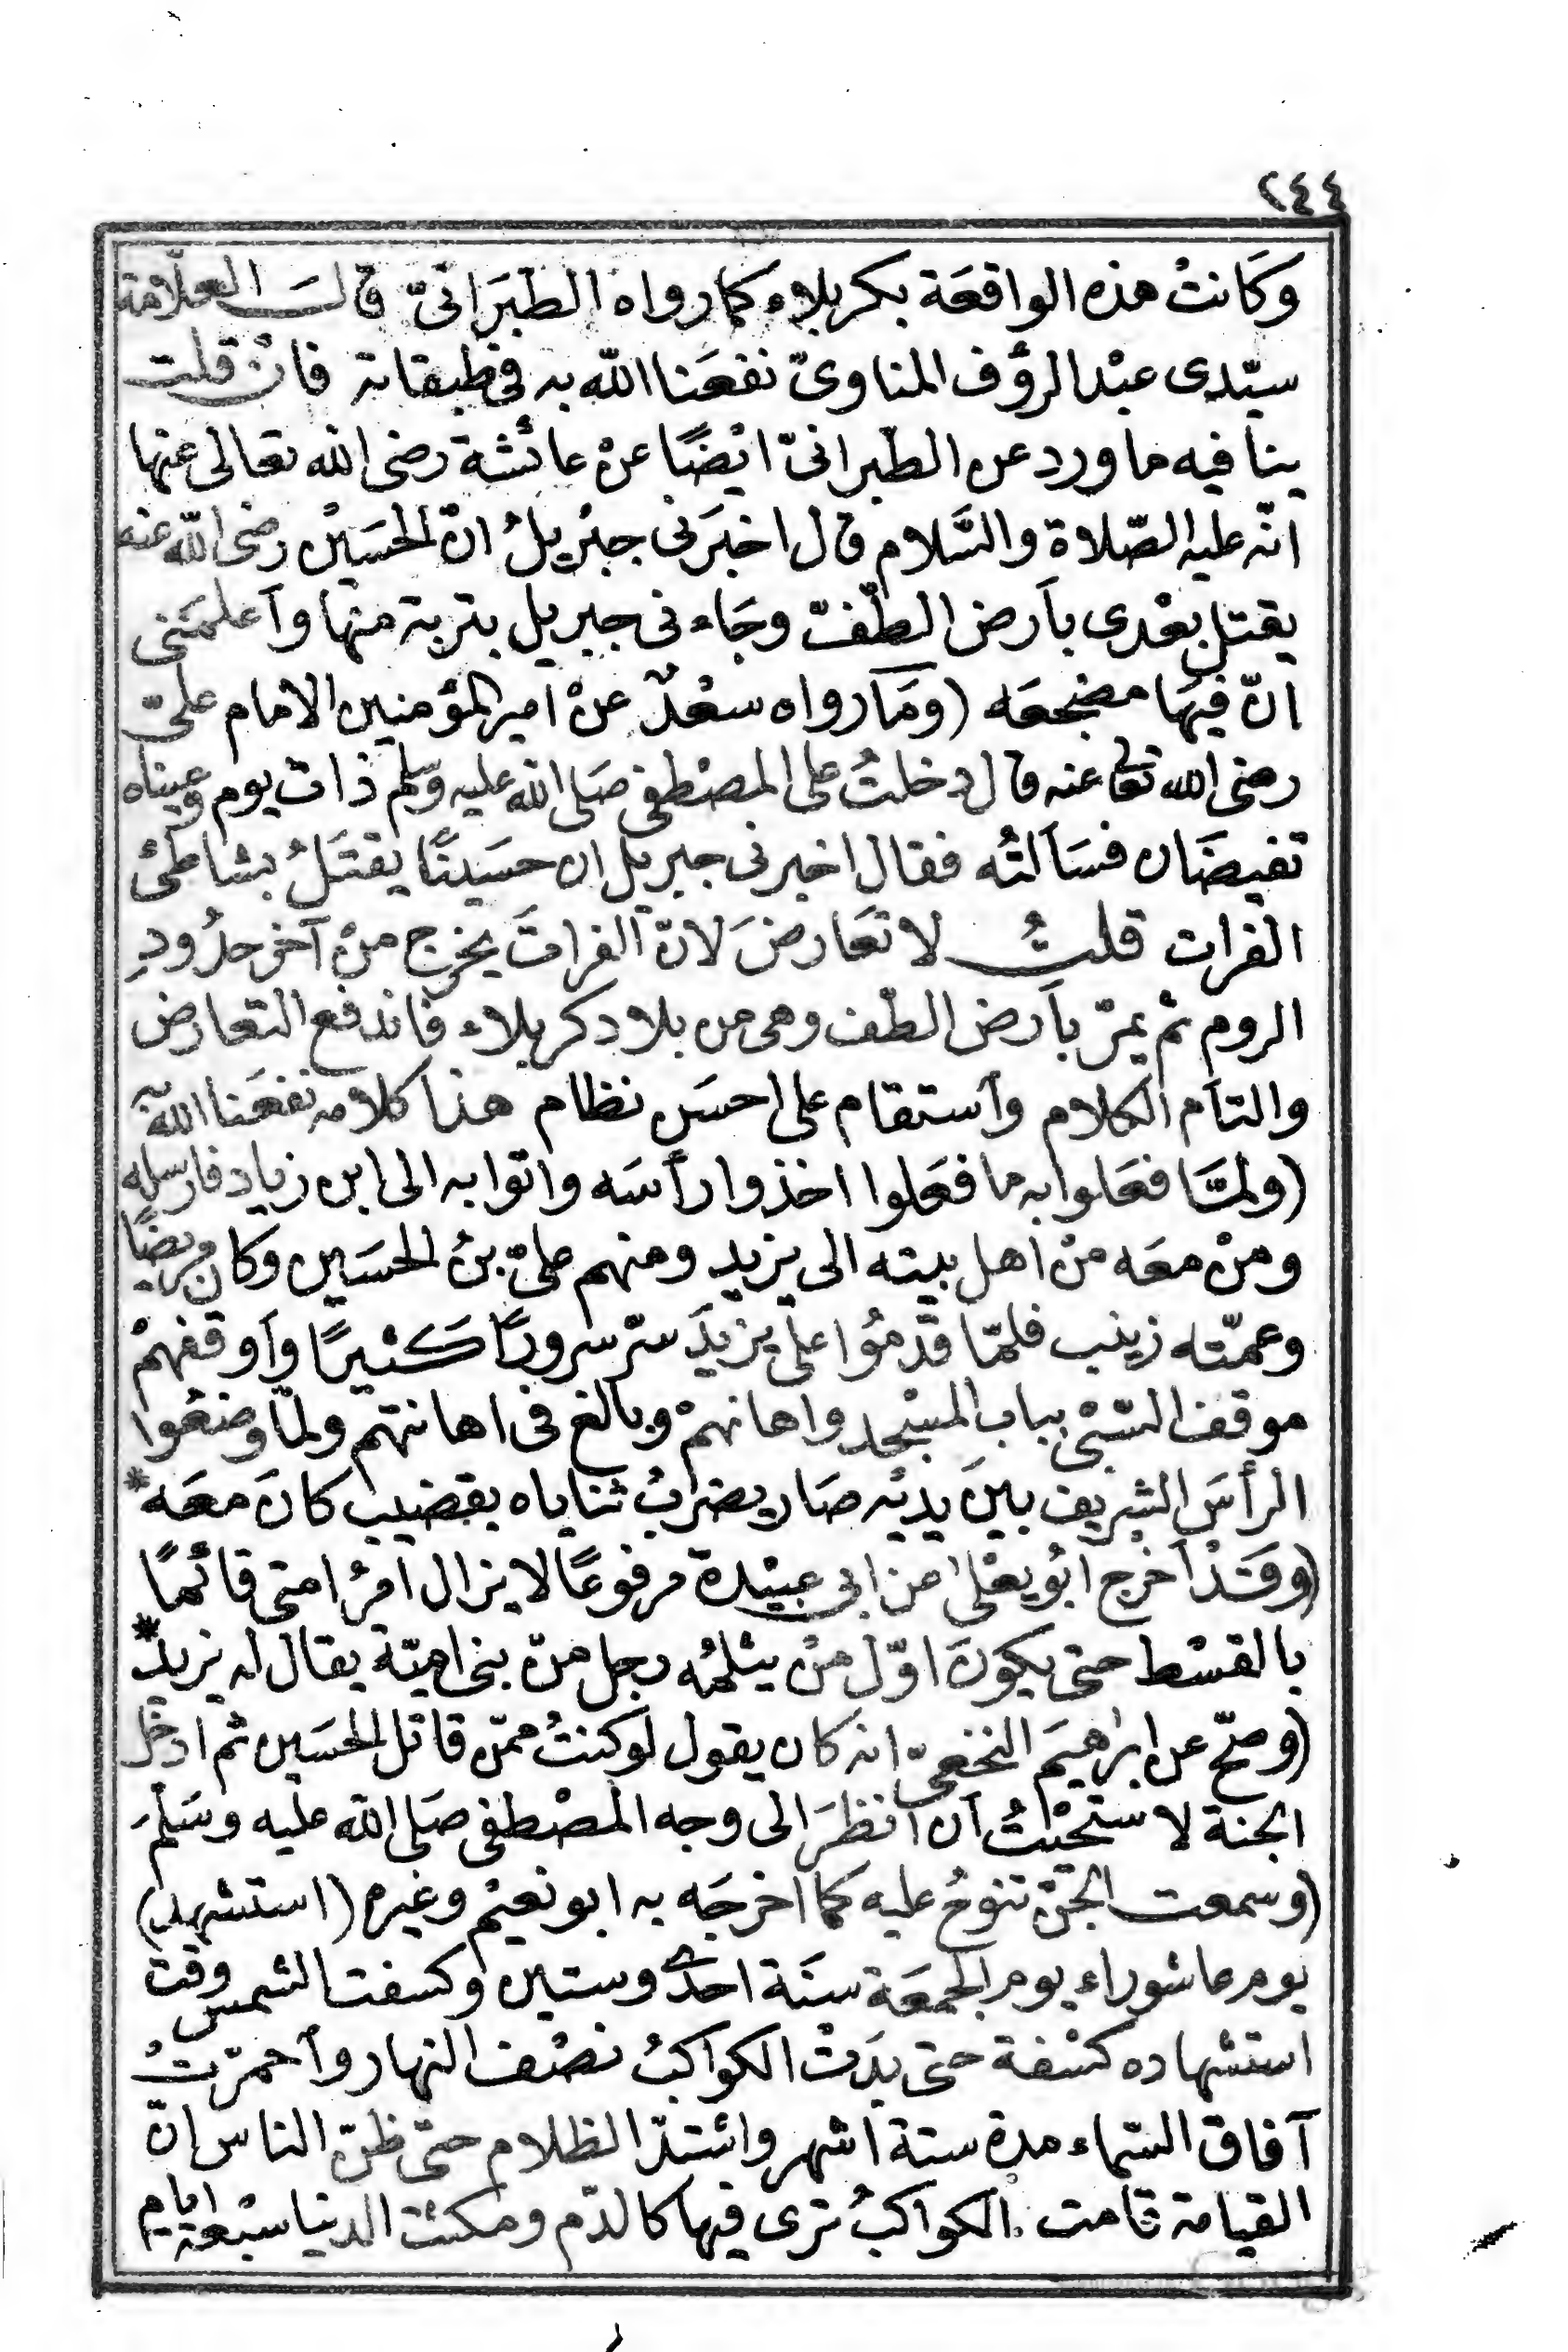 ٢٤٤
وكَانتْ هذه الواقعَة بكربلاء كما رواه الطبَرانىّ قالَ العلّامة
سيّدى عبْد الرؤف المناوىّ نفعَنا الله به فى طبقاته فان قلت
ينافيه ما ورد عن الطبرانىّ ايْضًا عنْ عائشة رضى الله تعالى عنها
انّه عليه الصّلاة والسَّلام قال اخبَرنى جبْريلُ انّ الحسَيْن رضى الله عنه
يقتل بعْدى بأَرض الطّفّ وجَاءنى جبريل بتربة منها وأَعلمَنى
انّ فيهَا مضجعَه (ومَا رواه سعْدٌ عنْ امير المؤمنين الامام علىّ
رضى الله تعا عنه قال دخلتُ على المصْطفى صَلى الله عليه وسَلم ذات يوم وعيناه
تفيضَان فسَألتُه فقال اخبرنى جبريل ان حسَينًا يقتَلُ بشاطئ
الفرات قلتُ لا تعَارضَ لانّ الفراتَ يخرج منْ آخر حدُودِ
الروم ثم يمرّ بأَرض الطّف وهى من بلاد كربلاء فاندفع التعارض
والتأم الكلام وأستقام على احسَن نظام هذا كلامه نفعَنا الله به
(ولمَّا فعَلوا به ما فعَلوا اخذوا رأسَه واتوا به الى ابن زياد فارسله
ومنْ معَه منْ اهل بيته الى يزيد ومنهم علىّ بنُ الحسَين وكان مريضًا
وعمّته زينب فلمّا قدمُوا على يزيدَ سرّ سرورًا كثيرًا وأوقفهمْ
موقف السّبْى بباب المسْجد واهانهمْ وبالغ فى اهانتهم ولمّا وضعُوا
الرأسَ الشريف بينَ يديْه صَار يضربُ ثناياه بقضيب كانَ معَه *
(وقَدْ أخرج ابُو يعْلى عن ابى عبيْدة مرفوعًا لا يزال امْرُ امتى قائمًا
بالقسْط حتى يكونَ اوّل منْ يثلمُه رجل منْ بنى اميّة يقال له يزيدُ *
(وصحّ عن ابرٰهيمَ النخعىّ انه كان يقول لو كنتُ ممّن قاتل الحسَين ثم ادخل
الجنة لاستحْيتُ ان انظرَ الى وجه المصْطفى صَلى الله عليه وسَلمَ
(وسمعت الجنّ تنوحُ عليه كما اخرجَه به ابو نعيْم وغيره (استشهد)
يوم عاشوراء يوم الجمعَة سنَة احدى وستين وكسفت الشمس وقت
استشهاده كسْفة حتى بدَتْ الكواكبُ نصْف النهار وأحمرّتْ
آفاق السّماء مدة ستة اشهر واشتدّ الظلام حتىّ ظنّ الناس انّ
القيامة قامت الكواكبُ ترى فيها كالدّم ومكثت الدنيا سبْعة ايام